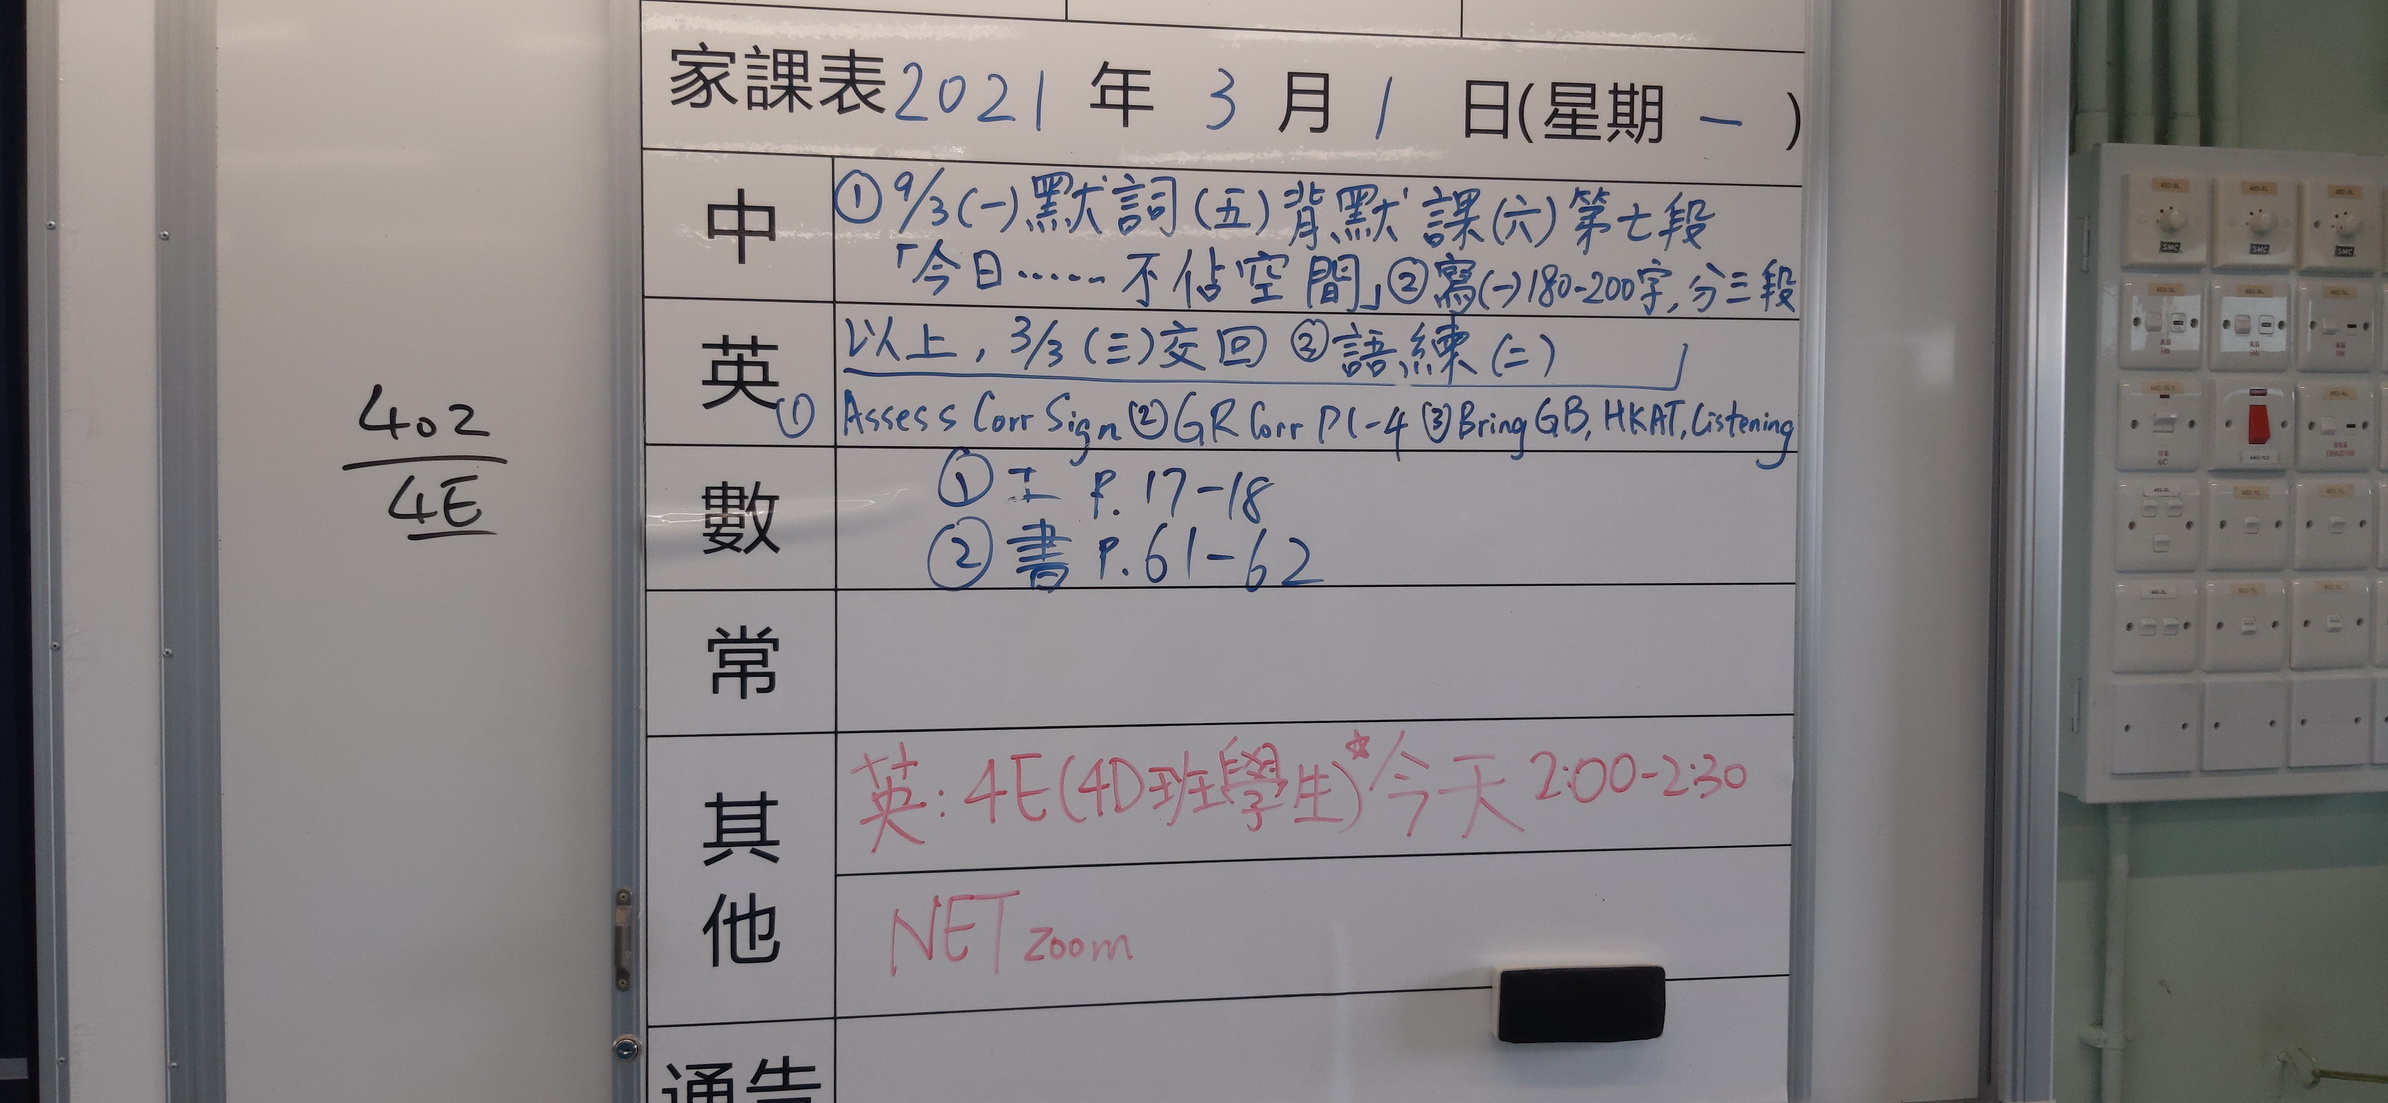 家課表 2021 年 3 月 1 日(星期 一 )
中
① 9/3(一)默詞(五)背默課(六)第七段
「今日……不佔空間」②寫(一)180-200字,分三段
英
以上, 3/3 (三)交回 ③語練(二)
① Assess Corr Sign ② GR Corr P1-4 ③ Bring GB, HKAT, Listening
數
① 工 P. 17-18
② 書 P. 61-62
常
其他
英: 4E(4D班學生)*今天 2:00-2:30
NET zoom
通告
402
4E
SMC
SMC
SMC